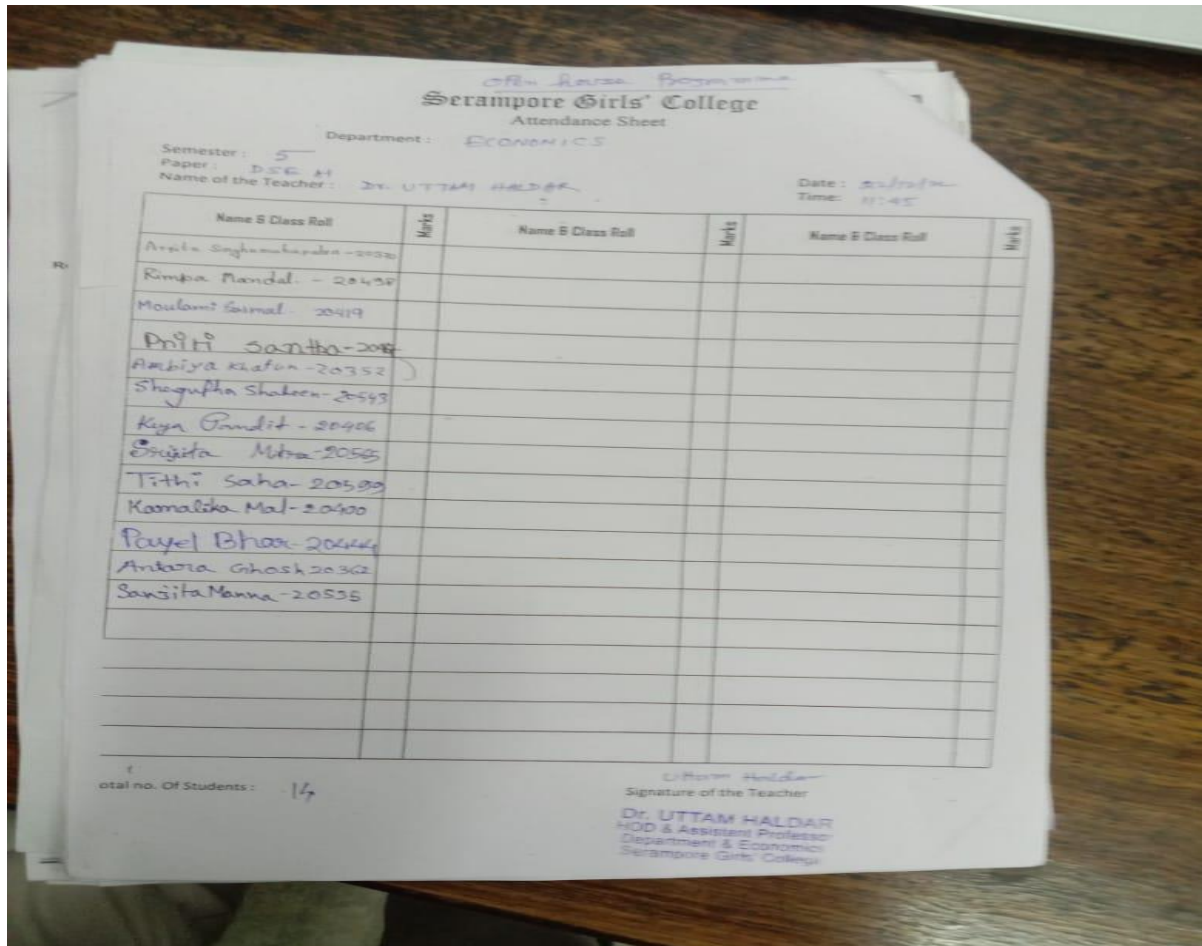 open house
Serampore Girls' College
Attendance Sheet
Department : ECONOMICS
Semester : 5
Paper : DSE
Name of the Teacher : Dr. UTTAM HALDAR
Date :
Time: 11:45
Name & Class Roll Marks Name & Class Roll Marks Name & Class Roll Marks
Rimpa Mandal. - 20498
Moulami Sarmal. 20419
Priti Santra-
Ambiya Khatun-20352
Shagufha Shaheen-20543
Keya Pandit - 20406
Srijita Mitra-20565
Tithi Saha-20599
Kamalika Mal-20400
Payel Bhar-20444
Antara Ghosh 20362
Sanjita Manna-20535
otal no. Of Students : 14
Uttam Haldar
Signature of the Teacher
Dr. UTTAM HALDAR
HOD & Assistant Professor
Department & Economics
Serampore Girls' College